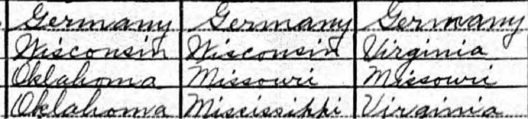 Germany Germany Germany
Wisconsin Wisconsin Virginia
Oklahoma Missouri Missouri
Oklahoma Mississippi Virginia